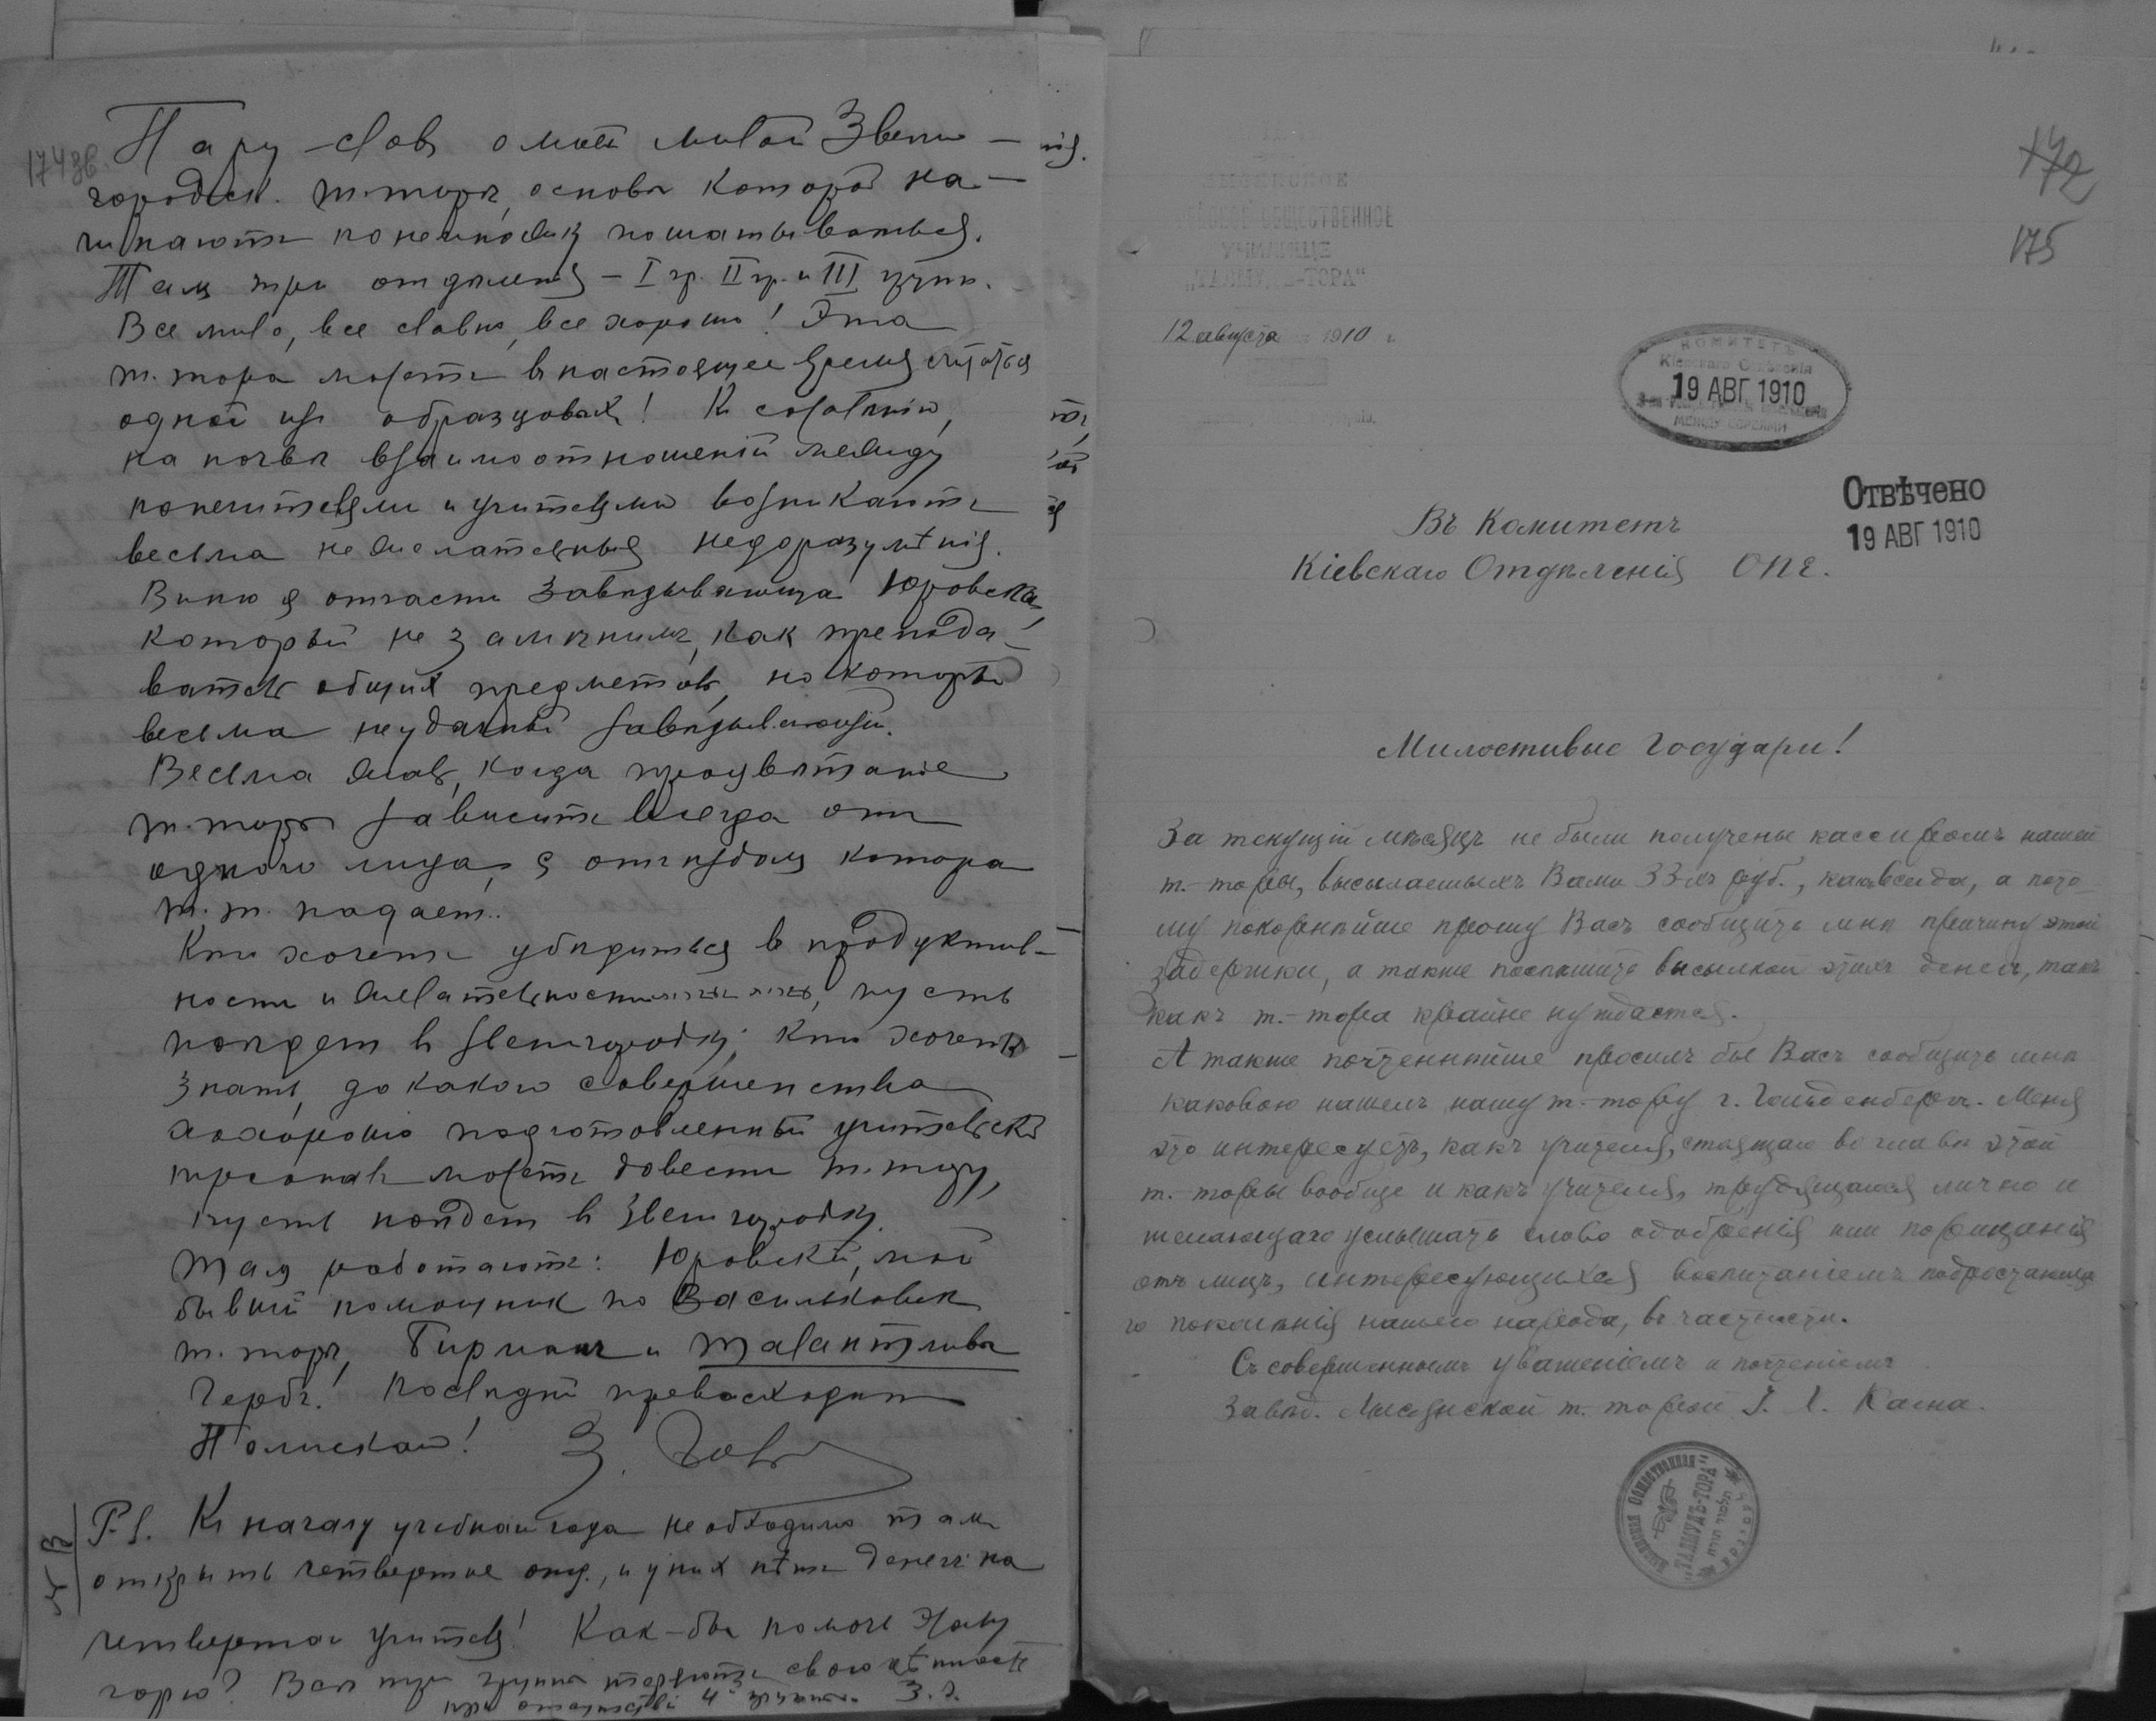 174 об.
Пару слов о моей милой Звени-
городск. т.-торѣ, основы которой на-
чинаютъ понемножку пошатываться.
Там три отдѣленія – I гр. II гр. и III групп.
Все мило, все славно, все хорошо! Эта
т. тора можетъ в настоящее время считаться
одной изъ образцовых! К сожалѣнію,
на почвѣ взаимоотношеній между
попечителями и учителями возникаютъ
весьма нежелательныя недоразумѣнія.
Виню я отчасти завѣдывающа Юровска,
который не замѣнимъ, как препода-
ватель общих предметов, но который
весьма неудачный завѣдывающій.
Весьма жаль, когда процвѣтаніе
т. торы зависитъ всегда отъ
одного лица, с отъѣздом котора
т. т. падает.
Кто хочетъ убѣдиться в продуктив-
ности и желательности, пусть
поѣдет в Звенигородку; кто хочетъ
знать, до какого совершенства
хорошо подготовленный учительскій
персонал можетъ довести т. тору,
пусть поѣдет в Звенигородку.
Там работаютъ: Юровскій, мой
бывшій помощник по Васильковск
т. торѣ, Бирман и талантливы
Герб. Послѣдній превосходит
З. Гов
P.S. К началу учебнаго года необходимо там
открыть четвертое отд., и у них нѣтъ денегъ на
четвертаго учителя! Как-бы помочь этому
горю? Вѣдь три группы теряютъ свою цѣнность
при отсутствіи 4й группы. З. Г.
172
175
ОБЩЕСТВЕННОЕ
УЧИЛИЩЕ
„ТАЛМУДЪ-ТОРА“
12 августа 1910 г.
КОМИТЕТЪ
Кіевскаго Отдѣленія
19 АВГ 1910
МЕЖДУ ЕВРЕЯМИ
Отвѣчено
19 АВГ 1910
Въ Комитетъ
Кіевскаго Отдѣленія ОПЕ.
Милостивые Государи!
За текущій мѣсяцъ не были получены кассиромъ нашей
т.-торы, высылаемыхъ Вами 33-хъ руб., какъ всегда, а пото-
му покорнѣйше прошу Васъ сообщить мнѣ причину этой
задержки, а также поспѣшить высылкой этихъ денегъ, такъ
какъ т.-тора крайне нуждается.
А также почтеннѣйше просилъ бы Васъ сообщить мнѣ
каковою нашелъ нашу т.-тору г. Гольденбергъ. Меня
это интересуетъ, какъ учителя, стоящаго во главѣ этой
т.-торы вообще и какъ учителя, трудящагося лично и
желающаго услышать слово одобренія или порицанія
отъ лицъ, интересующихся воспитаніемъ подростающа
го поколѣнія нашего народа, въ частности.
Съ совершеннымъ уваженіемъ и почтеніемъ
Завѣд. Лысянской т. торой I. Л. Каена.
ОБЩЕСТВЕННАЯ
„ТАЛМУДЪ-ТОРА“
תלמוד תורה